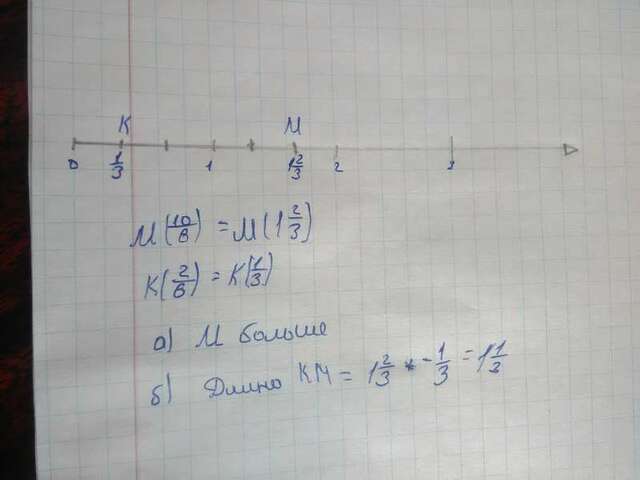 K M
0 1/3 1 1 2/3 2 3
M(10/6) = M(1 2/3)
K(2/6) = K(1/3)
а) M больше
б) Длина KM = 1 2/3 - 1/3 = 1 1/3